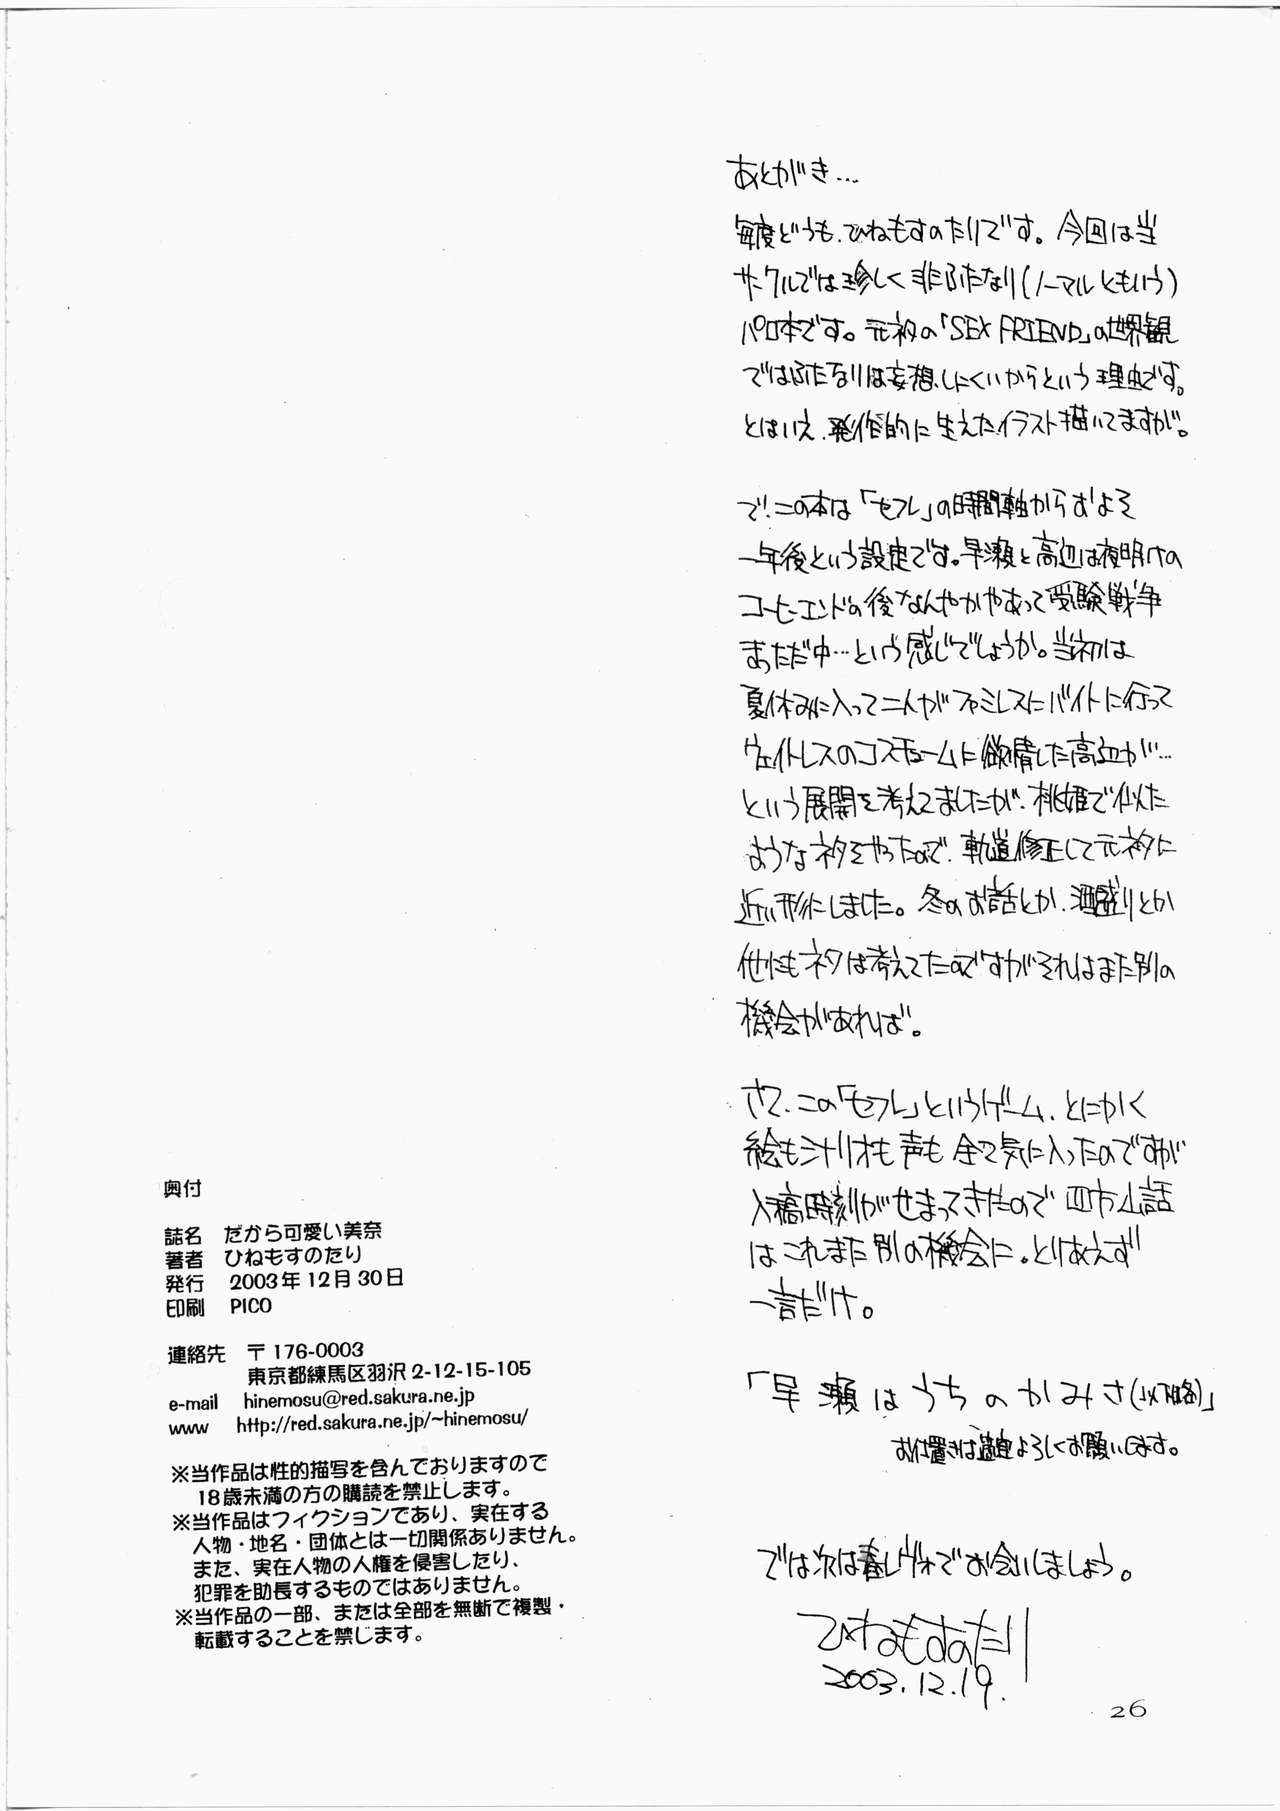 あとがき…
毎度どうも、ひねもすのたりです。今回は当
サークルでは珍しく非ふたなり(ノーマルともいう)
パロ本です。元ネタの「SEX FRIEND」の世界観
ではふたなりは妄想しにくいからという理由です。
とはいえ、発作的に生えたイラスト描いてますが。
で、この本は「セフレ」の時間軸からおよそ
一年後という設定です。早瀬と高辺は夜明けの
コーヒーエンドの後なんやかやあって受験戦争
まっただ中…という感じでしょうか。当初は
夏休みに入って二人がファミレスにバイトに行って
ウェイトレスのコスチュームに欲情した高辺が…
という展開を考えてましたが、桃姫で似た
ようなネタをやったので、軌道修正して元ネタに
近い形にしました。冬のお話とか、酒盛りとか
他にもネタは考えてたのですがそれはまた別の
機会があれば。
さて、この「セフレ」というゲーム、とにかく
絵もシナリオも声も全て気に入ったのですが
入稿時刻がせまってきたので四方山話
はこれまた別の機会に。とりあえず
一言だけ。
「早瀬はうちのかみさ(以下略)」
お仕置きは適宜よろしくお願いします。
では次は春レヴォでお会いしましょう。
ひねもすのたり
2003.12.19.
奥付
誌名 だから可愛い美奈
著者 ひねもすのたり
発行 2003年12月30日
印刷 PICO
連絡先 〒176-0003
東京都練馬区羽沢2-12-15-105
e-mail hinemosu@red.sakura.ne.jp
www http://red.sakura.ne.jp/~hinemosu/
※当作品は性的描写を含んでおりますので
18歳未満の方の購読を禁止します。
※当作品はフィクションであり、実在する
人物・地名・団体とは一切関係ありません。
また、実在人物の人権を侵害したり、
犯罪を助長するものではありません。
※当作品の一部、または全部を無断で複製・
転載することを禁じます。
26